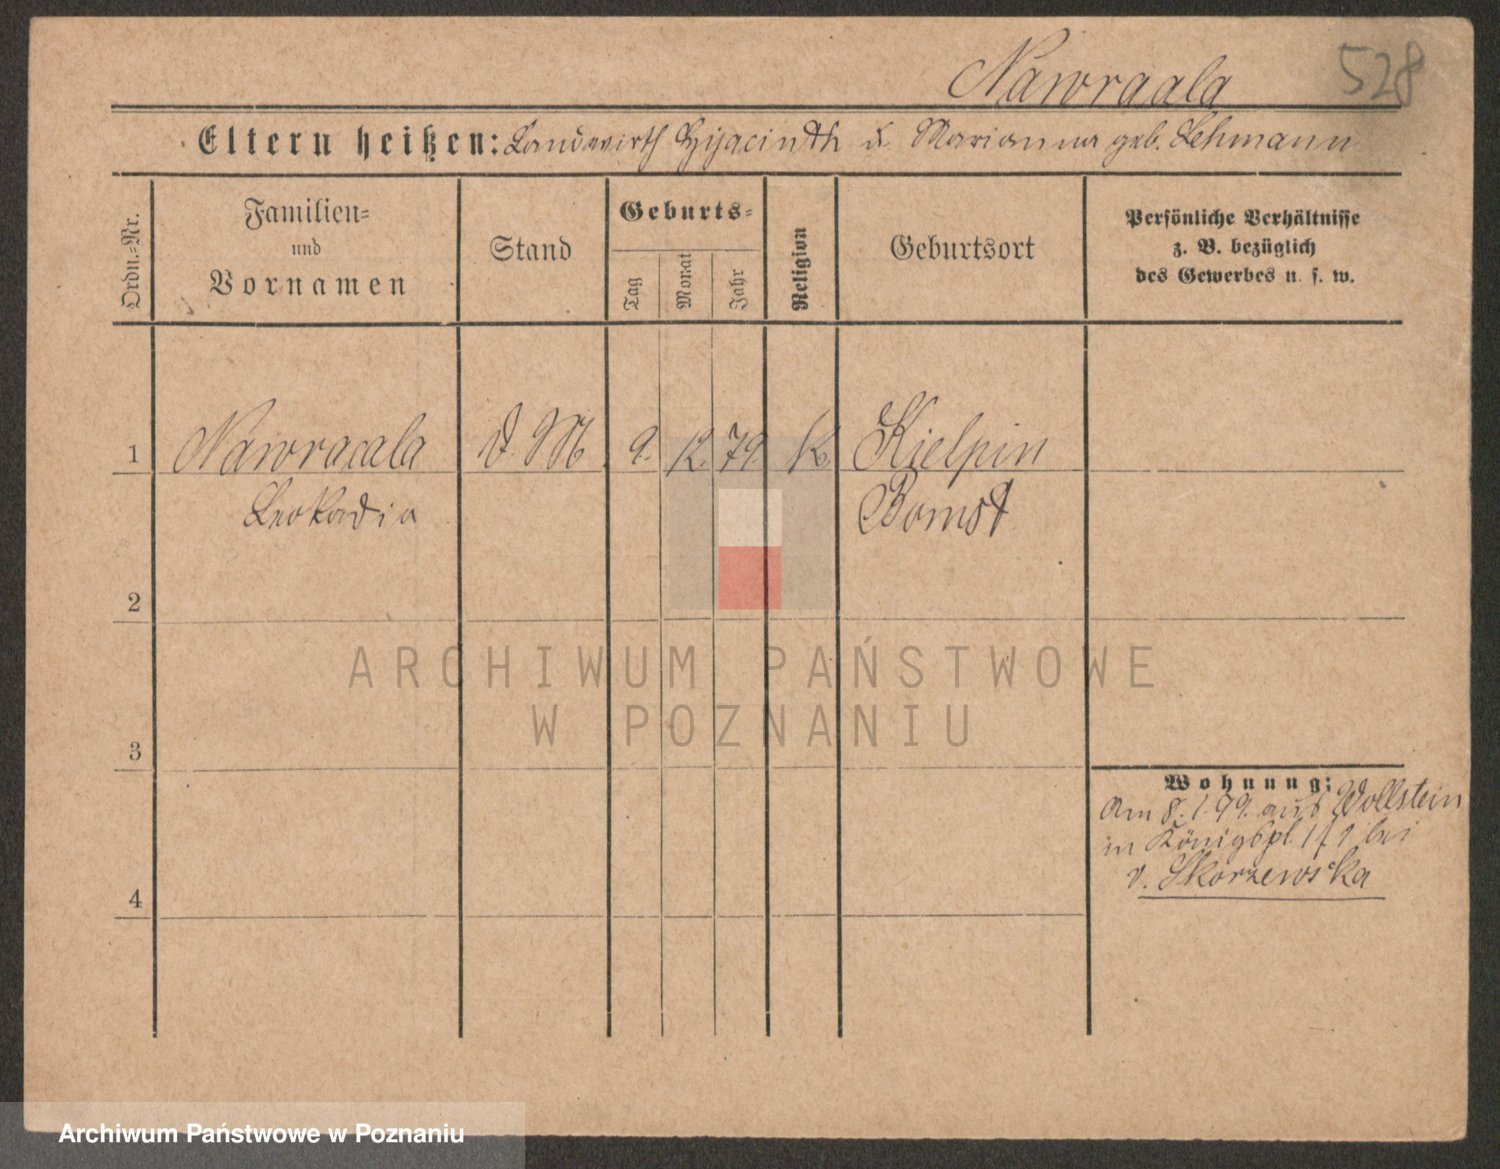 Nawracala
528
Eltern heißen: Landwirth Hyjacinth u. Marianna geb. Lehmann
Ordn.-Nr.
Familien-
und
Vornamen
Stand
Geburts-
Tag
Monat
Jahr
Religion
Geburtsort
Persönliche Verhältnisse
z. B. bezüglich
des Gewerbes u. s. w.
1 Nawracala d. M. 9. 12. 79. K. Kielpin
Leokadia Bomst
2
ARCHIWUM PAŃSTWOWE
W POZNANIU
3
Wohnung:
Am 8.1.99. aus Wollstein
in Königspl. bei
v. Skorzewska
4
Archiwum Państwowe w Poznaniu